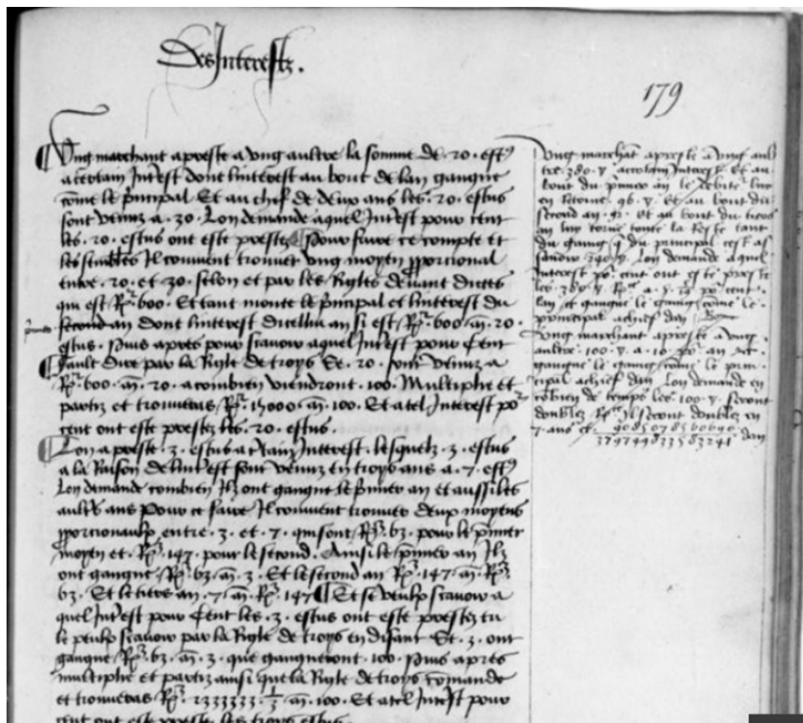 Des Interestz.
179
Ung marchant a preste a ung aultre la somme de .20. estus
a certain Int'est dont linterest au bout de lan gangne
come le p'ncipal Et au chief de deux ans les .20. estus
sont venuz a .30. Lon demande a quel Int'est pour cent
les .20. estus ont este prestez Pour faire ce compte et
les semblēs Il convient trouver ung moyen pporcional
entre .20. et .30. selon et par les Rigles devant dictes
qui est R².600. Et tant monte le p'ncipal et linterest du
second an dont linterest dicellui an si est R².600.m̃.20.
estus. Puis apres pour scavoir a quel Int'est pour Cent
fault dire par la Rigle de troys Se .20. sont venuz a
R².600.m̃.20. a combien viendront .100. Multiplie et
partiz et trouveras R².15000.m̃.100. Et a tel Interest po'
cent ont este prestez les .20. estus.
Lon a preste .3. estus a c'tain Interest. lesquelz .3. estus
a la Raison de lint'est sont venuz en troys ans a .7. estus
Lon demande combien Ilz ont gangne le p'mier an et aussi les
ault's ans Pour ce faire Il convient trouver deux moyens
pporcionaulx entre .3. et .7. qui sont R³.63. pour le p'mier
moyen et R³.147. pour le second. Ainsi le p'mier an Ilz
ont gangne R³.63.m̃.3. Et le second an R³.147.m̃.R³.
63. Et le tiers an .7.m̃.R³.147 Et se veulx scavoir a
quel Int'est pour Cent les .3. estus ont este prestez tu
le peulx scavoir par la Rigle de troys en disant Se .3. ont
gangne R³.63.m̃.3. que gangneront .100. Puis apres
multiplie et partiz ainsi que la Rigle de troys comande
et trouveras R³.2333333.⅓.m̃.100. Et a tel Int'est pour
cent ont este preste les troys estus.
Ung marchāt a preste a ung aul
tre .380. a certain Interest Et au
bout du p'mier an le debite' luy
en
second an Et au bout du tiers
an luy torne toute la Reste tant
du gaing q̃ du principal cest as
savoir Lon demande a quel
Interest po' cent ont este preste
les po' cent.
lan et gangne le gaing come le
principal a chief dan
Ung marchant a preste a ung
aultre .100. a .10. po' an et
gangne le gaing come le prin
cipal a chief dan Lon demande en
cōbien de temps les .100. seront
doublez R² Il seront doublez en
7. ans et dan